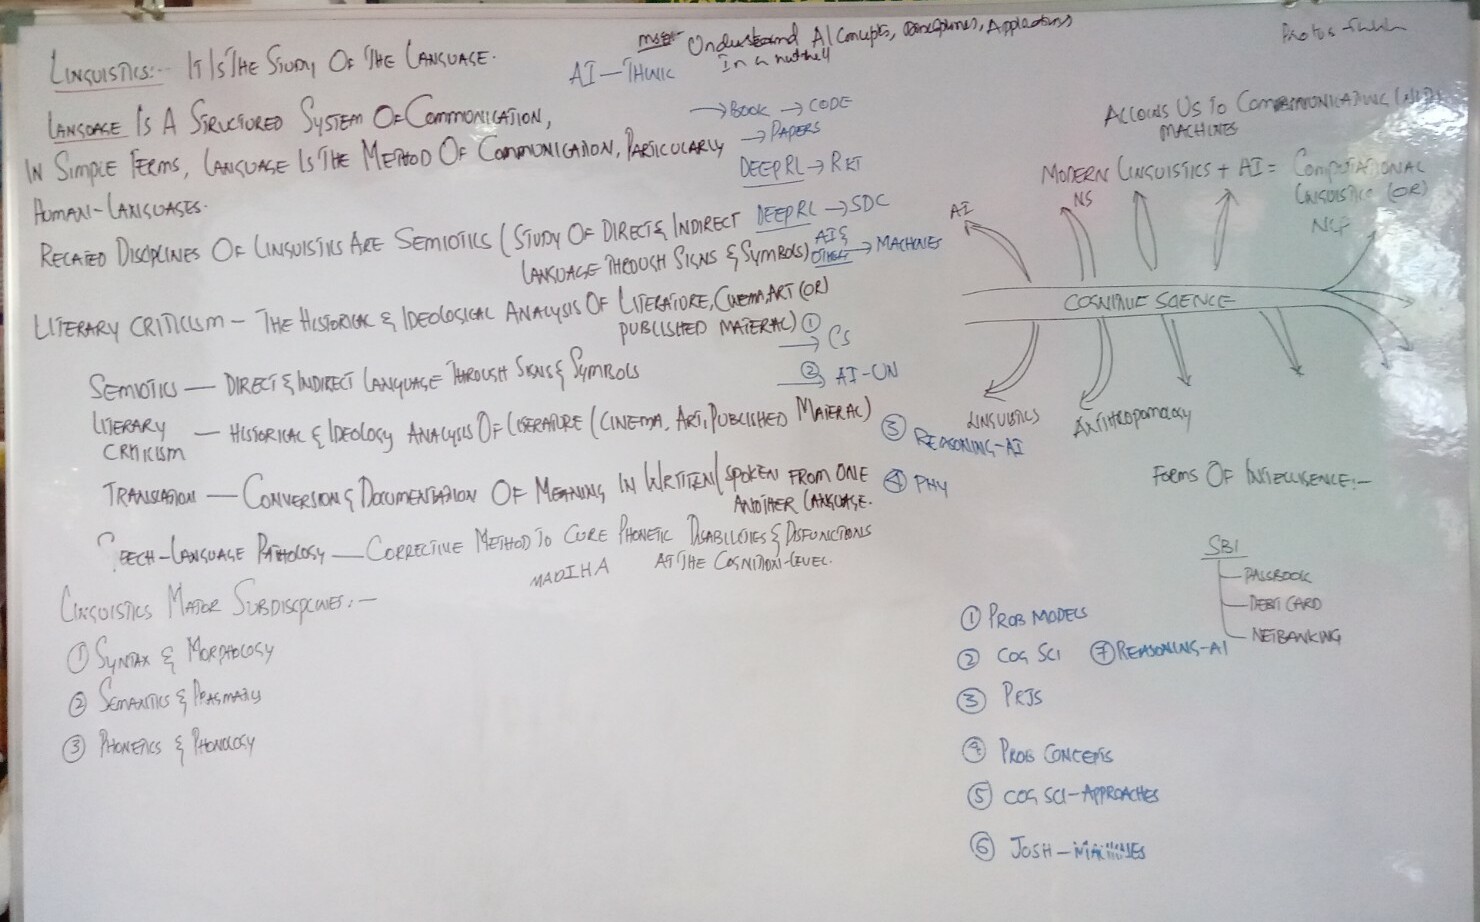 LINGUISTICS:- IT IS THE STUDY OF THE LANGUAGE.
Understand AI Concepts, Disciplines, Applications
In a nutshell
AI - THINK
LANGUAGE IS A STRUCTURED SYSTEM OF COMMUNICATION,
IN SIMPLE TERMS, LANGUAGE IS THE METHOD OF COMMUNICATION, PARTICULARLY
HUMAN-LANGUAGES.
RELATED DISCIPLINES OF LINGUISTICS ARE SEMIOTICS (STUDY OF DIRECT & INDIRECT
LANGUAGE THROUGH SIGNS & SYMBOLS)
LITERARY CRITICISM - THE HISTORICAL & IDEOLOGICAL ANALYSIS OF LITERATURE, CINEMA, ART (OR)
PUBLISHED MATERIAL)
SEMIOTICS - DIRECT & INDIRECT LANGUAGE THROUGH SIGNS & SYMBOLS
LITERARY CRITICISM - HISTORICAL & IDEOLOGY ANALYSIS OF LITERATURE (CINEMA, ART, PUBLISHED MATERIAL)
TRANSLATION - CONVERSION & DOCUMENTATION OF MEANING IN WRITTEN/SPOKEN FROM ONE
ANOTHER LANGUAGE.
SPEECH-LANGUAGE PATHOLOGY - CORRECTIVE METHOD TO CURE PHONETIC DISABILITIES & DISFUNCTIONS
AT THE COGNITION-LEVEL.
MADIHA
LINGUISTICS MAJOR SUBDISCIPLINES:-
① SYNTAX & MORPHOLOGY
② SEMANTICS & PRAGMATICS
③ PHONETICS & PHONOLOGY
→ BOOK → CODE
→ PAPERS
DEEPRL → RKT
DEEPRL → SDC
AI & OTHER → MACHINES
① → CS
② → AI-UN
③ REASONING-AI
④ PHY
ALLOWS US TO COMMUNICATING WITH
MACHINES
MODERN LINGUISTICS + AI = COMPUTATIONAL
LINGUISTICS (OR)
NLP
AI
NS
COGNITIVE SCIENCE
LINGUISTICS
ANTHROPOMOLOGY
FORMS OF INTELLIGENCE:-
SBI
PASSBOOK
DEBIT CARD
NETBANKING
① PROB MODELS
② COG SCI ⑦ REASONING-AI
③ PRJS
④ PROB CONCEPTS
⑤ COG SCI-APPROACHES
⑥ JOSH - MACHINES